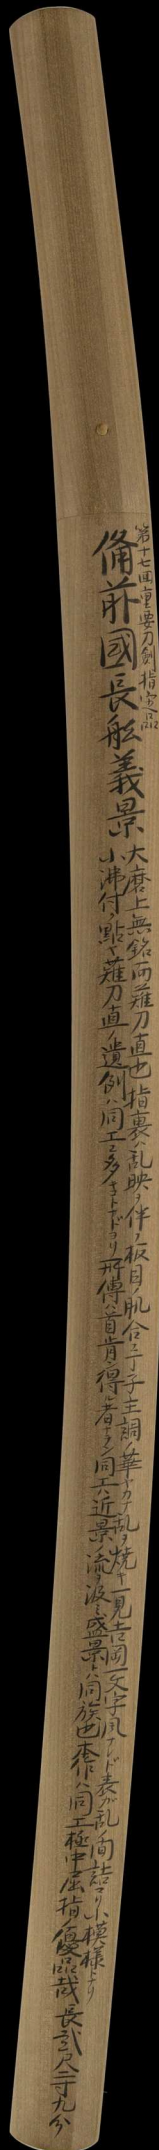 第十七回重要刀剣指定品
備前國長舩義景
大磨上無銘而薙刀直也指裏ハ乱映ヲ伴フ板目ノ肌合ニ丁子主調ノ華ヤカナ乱ヲ焼キ一見吉岡一文字風ナレド表ガ乱ノ間詰マリ小模様トナリ
小沸付ク點ヤ薙刀直ノ遺例ハ同工ニ多キトコロヨリ所傳ハ首肯シ得ル者ナラン同工ハ近景ノ流ヲ汲ミ盛景トハ同族也本作ハ同工極中屈指ノ優品哉長貮尺二寸九分